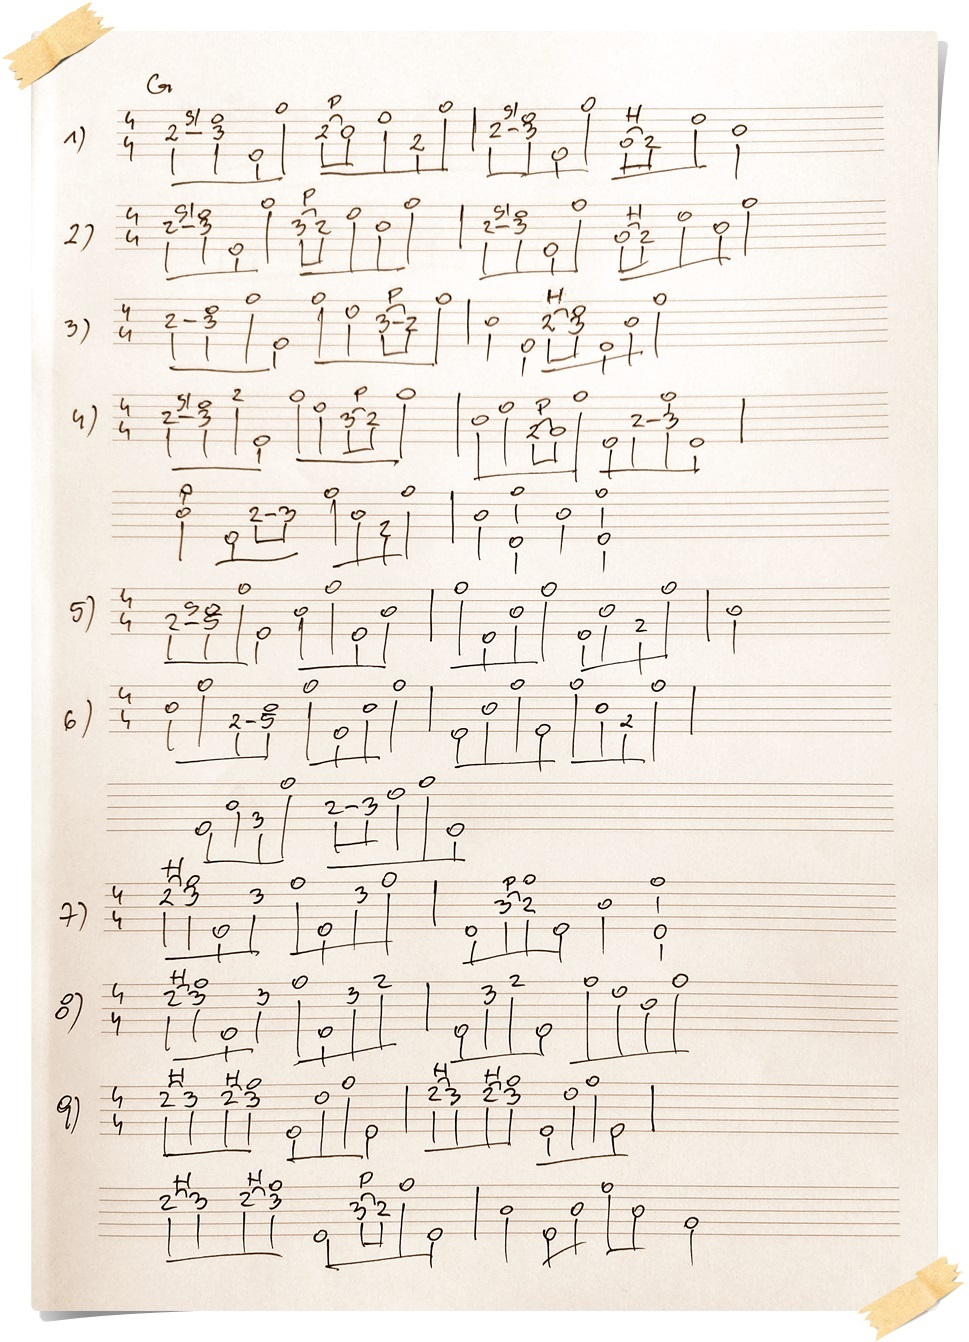 G
Sl P Sl H
1) 4/4 2-3 0 0 0 2 0 0 2 0 | 2-3 0 0 0 0 2 0 0
Sl P Sl H
2) 4/4 2-3 0 0 0 3 2 0 0 0 | 2-3 0 0 0 0 2 0 0 0
P H
3) 4/4 2-3 0 0 0 0 0 3-2 0 | 0 0 2 3 0 0 0 0
Sl P P
4) 4/4 2-3 0 2 0 0 0 3 2 0 | 0 0 2 0 0 0 2-3 0 0 |
P
0 0 2-3 0 0 2 0 | 0 0 0 0 0 0
5) 4/4 2-3 0 0 0 0 0 0 0 | 0 0 0 0 0 0 2 0 | 0
6) 4/4 0 0 2-3 0 0 0 0 0 | 0 0 0 0 0 0 2 0 |
0 0 3 0 2-3 0 0 0
H P
7) 4/4 2 3 0 0 3 0 0 3 0 | 0 3 2 0 0 0 0 0
H
8) 4/4 2 3 0 0 3 0 0 3 2 | 0 3 2 0 0 0 0 0
H H H H
9) 4/4 2 3 2 3 0 0 0 0 0 | 2 3 2 3 0 0 0 0 0 |
H H P
2 3 2 3 0 0 3 2 0 0 | 0 0 0 0 0 0